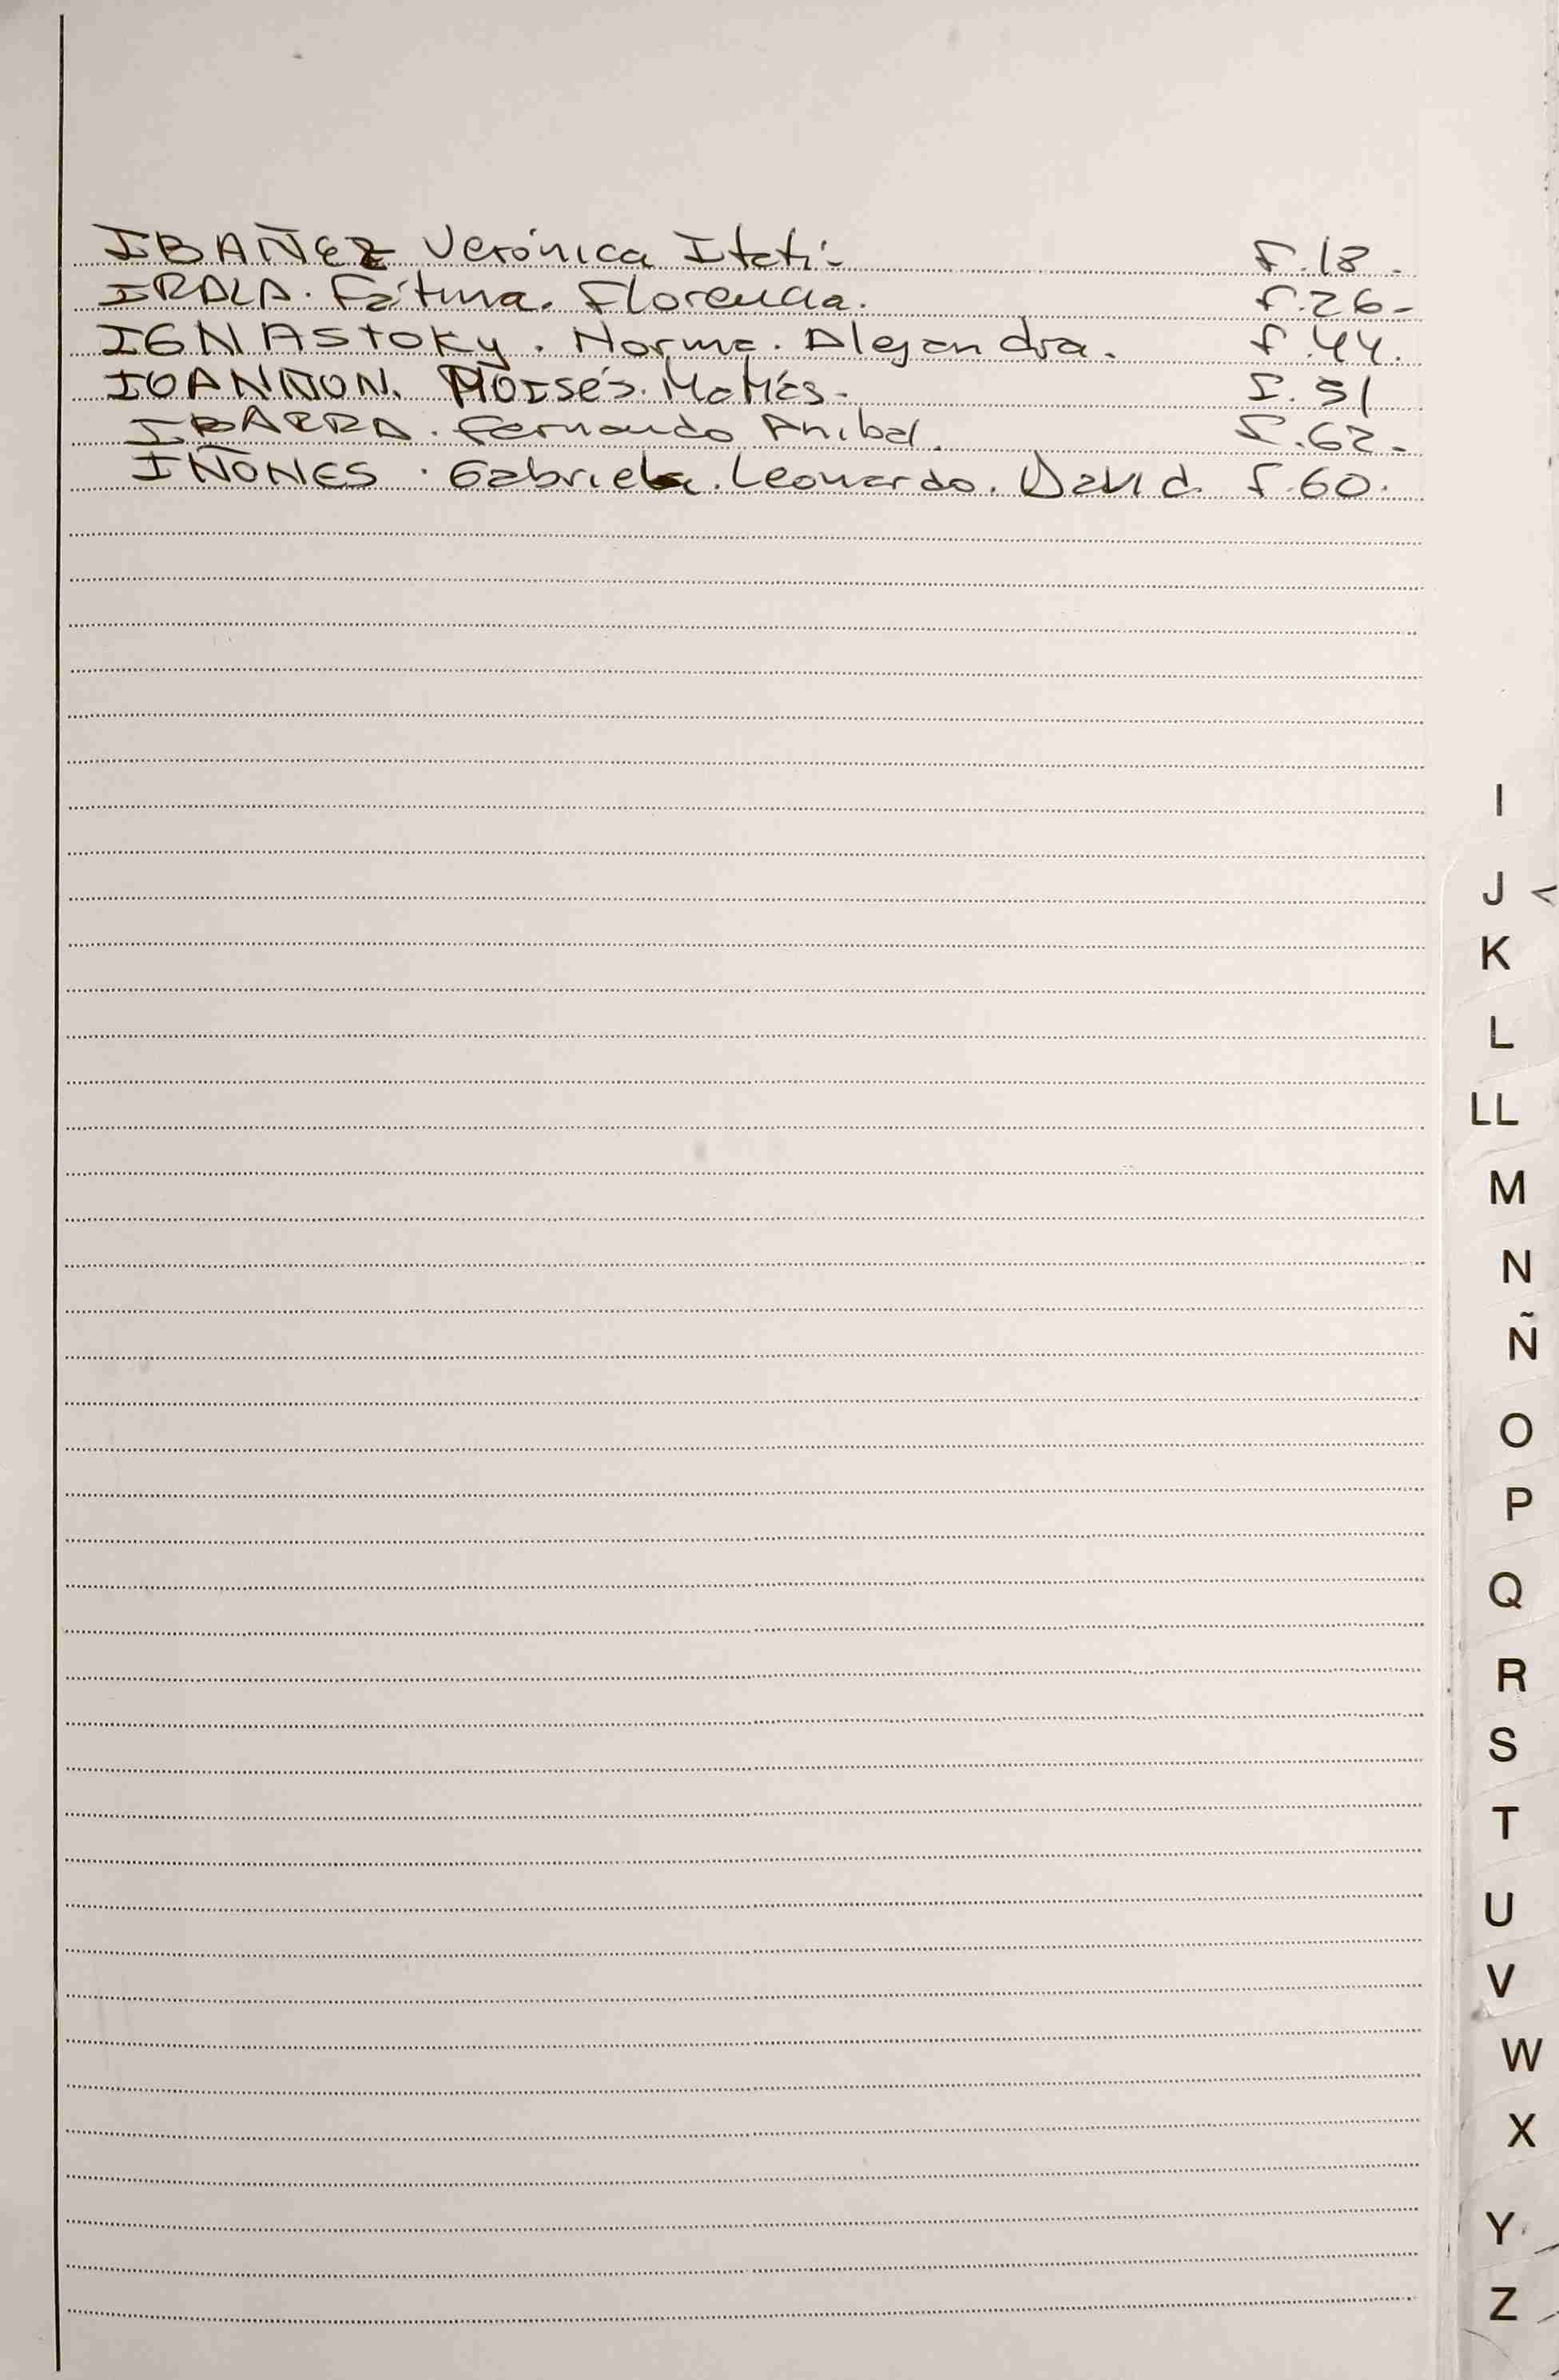 IBAÑEZ Verónica Itatí- f.18.
IRALA. Fátima. Florencia. f.26-
IGNASTOKY. Norma. Alejandra. f.44.
IOANNON. Moisés. Matías- f.51
IBARRA. Fernando Anibal. f.62-
IÑONES. Gabriela. Leonardo. David. f.60.
I
J <
K
L
LL
M
N
Ñ
O
P
Q
R
S
T
U
V
W
X
Y
Z